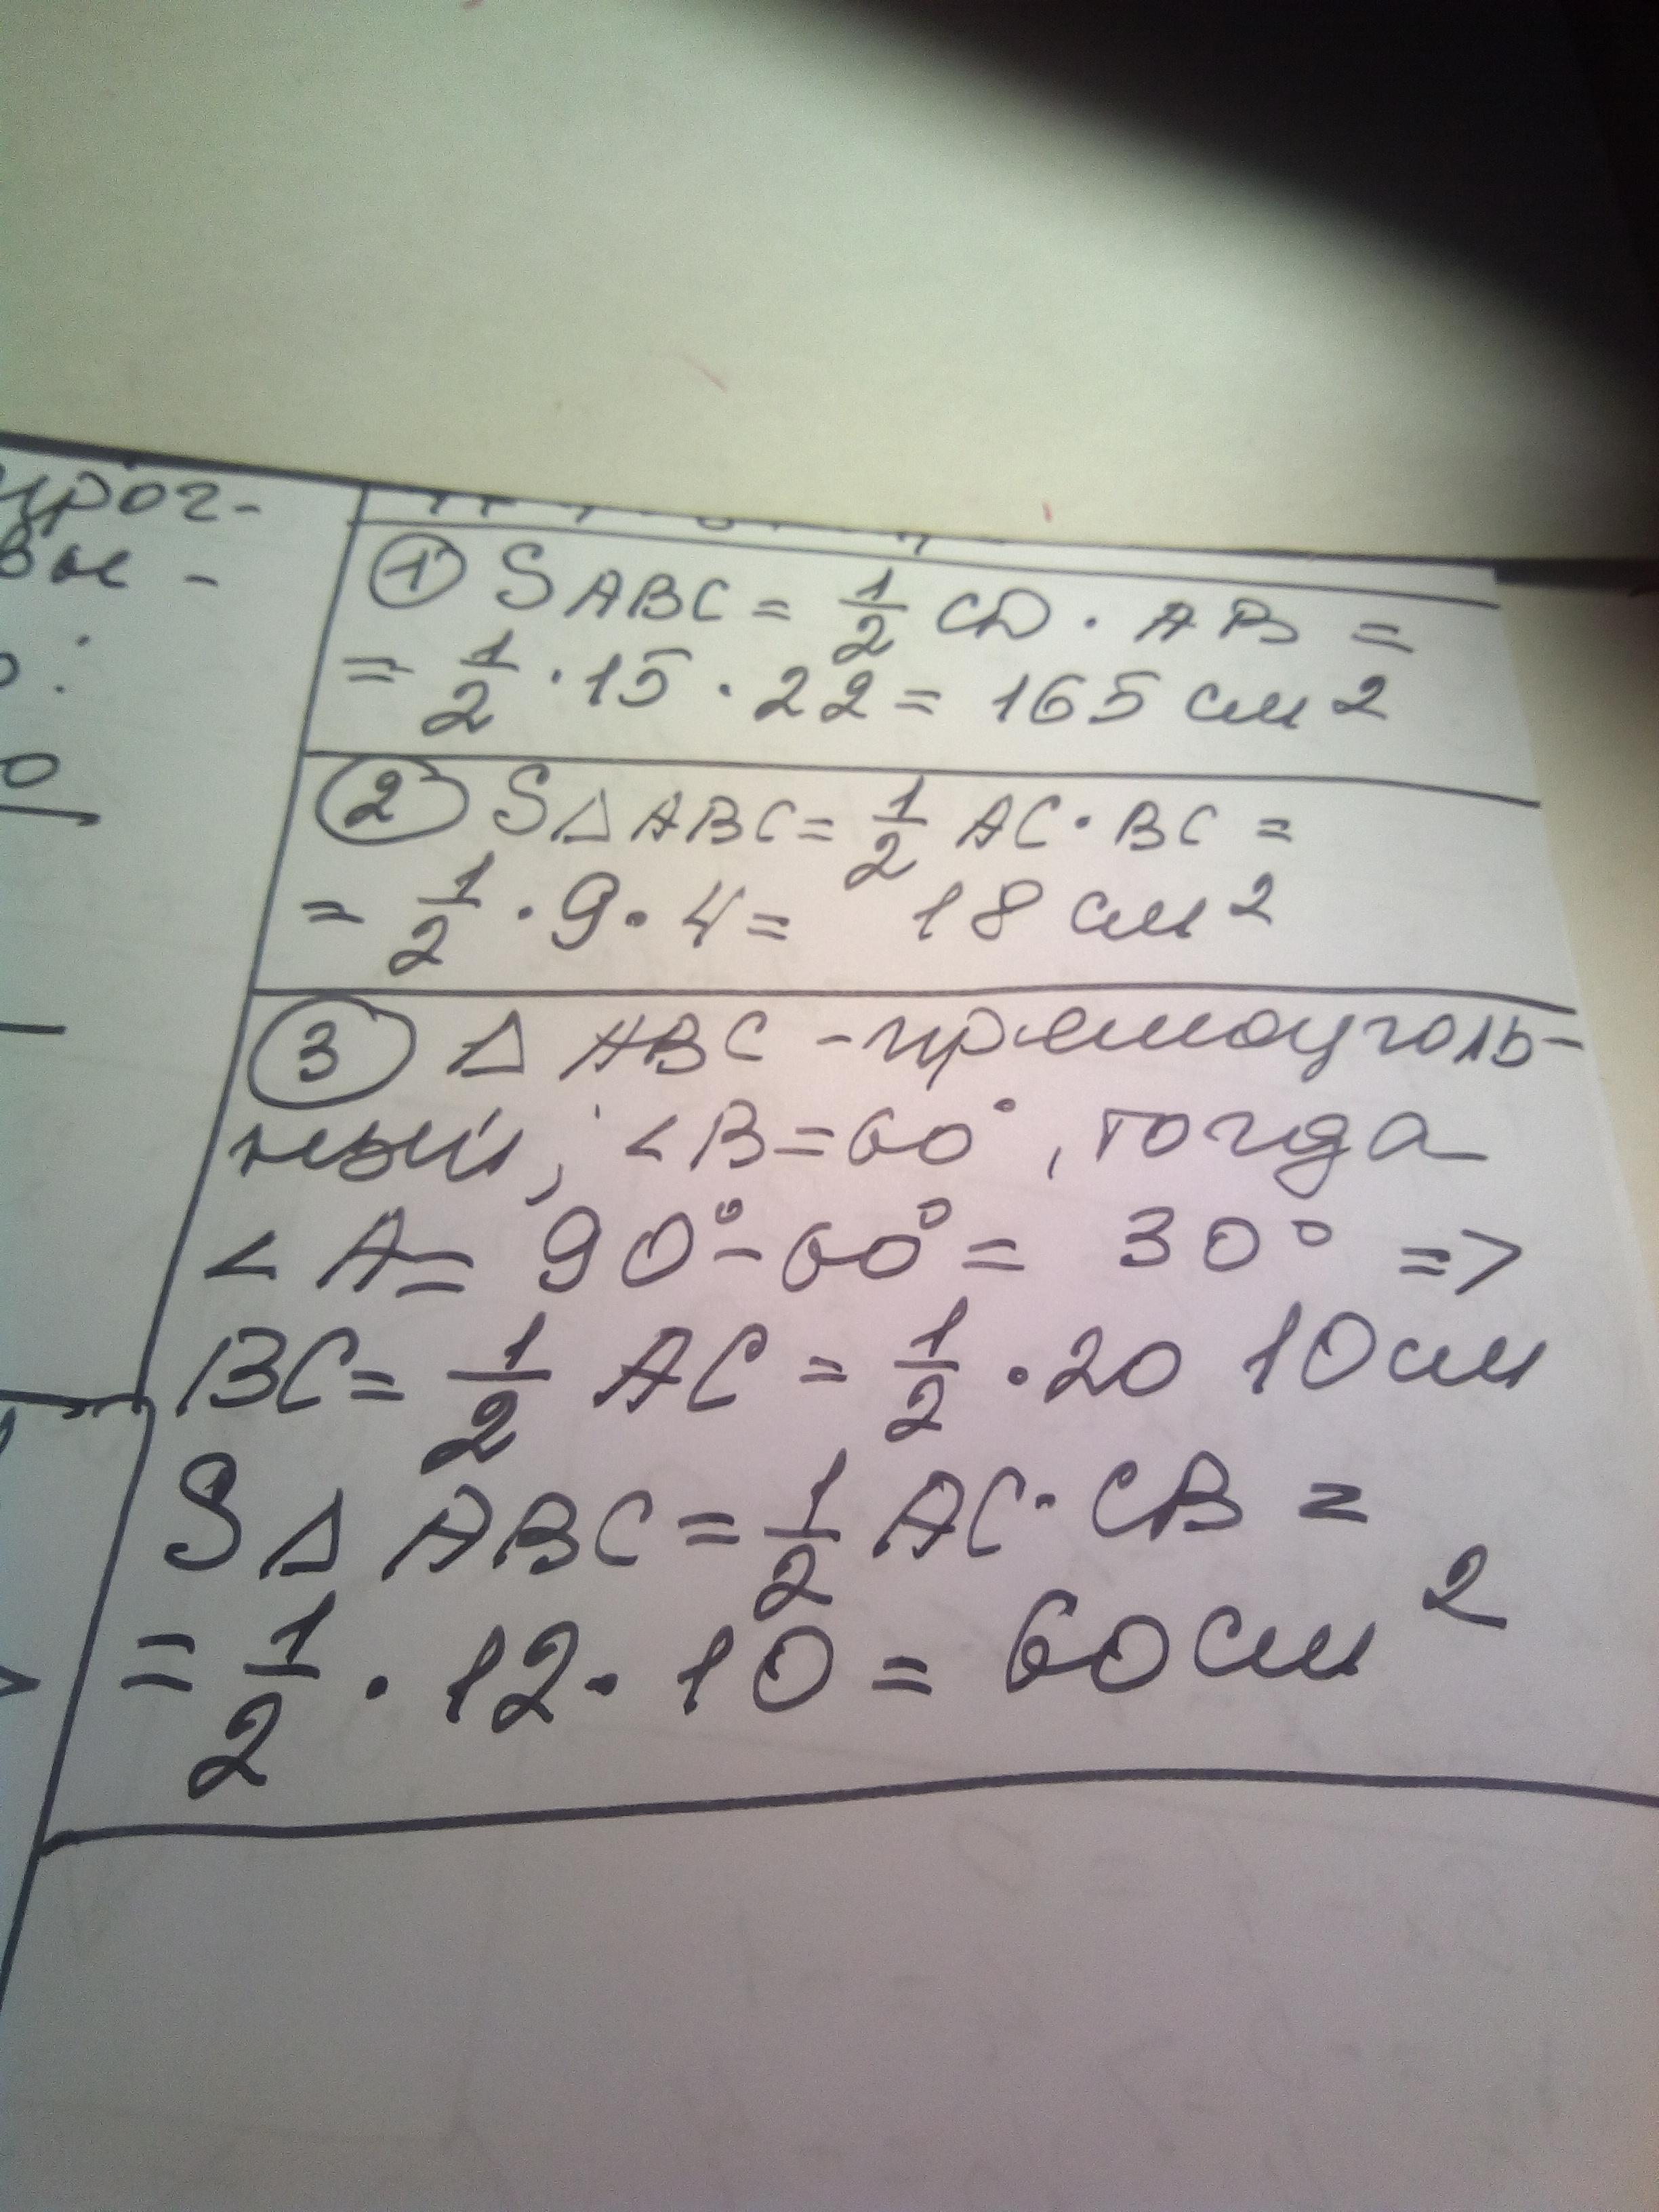 ① SABC = 1/2 CD · AB =
= 1/2 · 15 · 22 = 165 см2
② S△ABC = 1/2 AC · BC =
= 1/2 · 9 · 4 = 18 см2
③ △ ABC - прямоуголь-
ный, <B=60°, тогда
<A= 90°-60°= 30° =>
BC= 1/2 AC = 1/2 · 20 10см
S△ ABC = 1/2 AC · CB =
= 1/2 · 12 · 10 = 60см2